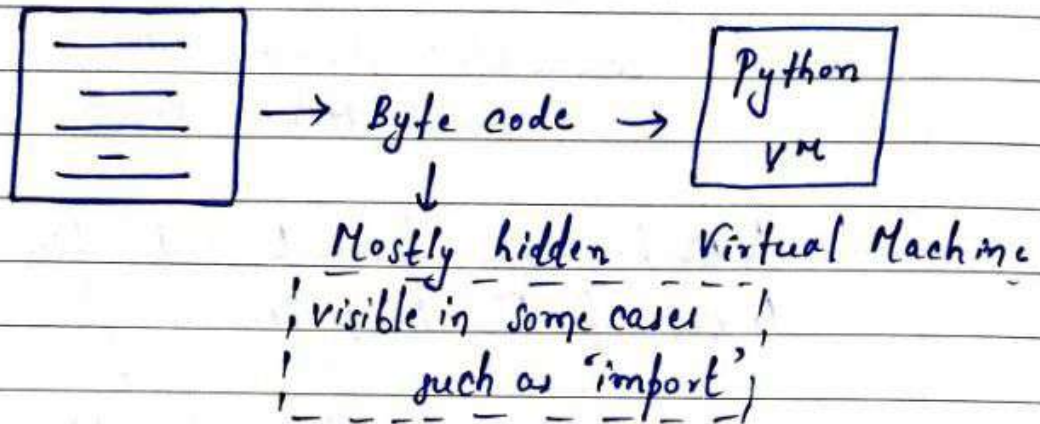 Byte code
Python
VM
Mostly hidden
Virtual Machine
visible in some cases
such as 'import'